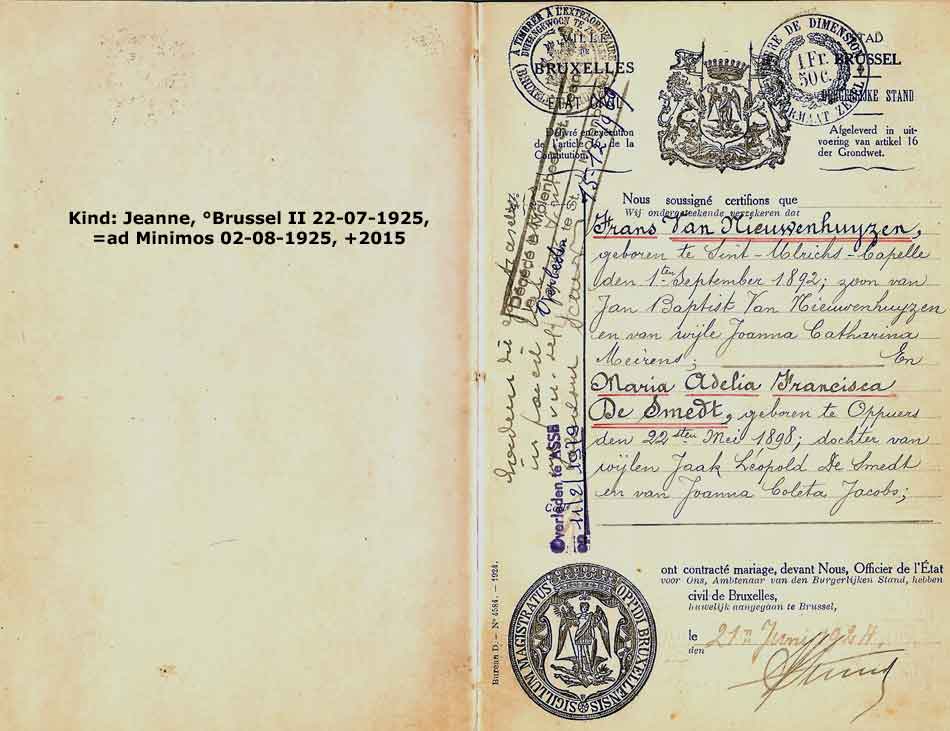 Kind: Jeanne, °Brussel II 22-07-1925,
=ad Minimos 02-08-1925, +2015
A TIMBRER À L'EXTRAORDINAIRE
BRUXELLES
VILLE DE
BRUXELLES
ÉTAT CIVIL
Délivré en exécution
de l'article de la
Constitution.
DE DIMENSION
1 Fr.
50c.
STAD
BRUSSEL
BURGERLIJKE STAND
Afgeleverd in uit-
voering van artikel 16
der Grondwet.
Nous soussigné certifions que
Wij ondergeteekende verzekeren dat
Frans Van Nieuwenhuyzen,
geboren te Sint-Ulrichs-Capelle
den 1sten September 1892; zoon van
Jan Baptist Van Nieuwenhuyzen
en van wijle Joanna Catharina
Meirens; En
Maria Adelia Francisca
De Smedt, geboren te Oppuers
den 22sten Mei 1898; dochter van
wijlen Jaak Léopold De Smedt
en van Joanna Coleta Jacobs;
Décédé à Molenbeek-St-Jean
Overleden te St.
Overleden te ASSE
op 11/2/1979
ont contracté mariage, devant Nous, Officier de l'État
voor Ons, Ambtenaar van den Burgerlijken Stand, hebben
civil de Bruxelles,
huwelijk aangegaan te Brussel,
le 21n Juni 1924.
den
Bureau D. — N° 4584. — 1924.
SIGILLUM MAGISTRATUS OPPIDI BRUXELLENSIS